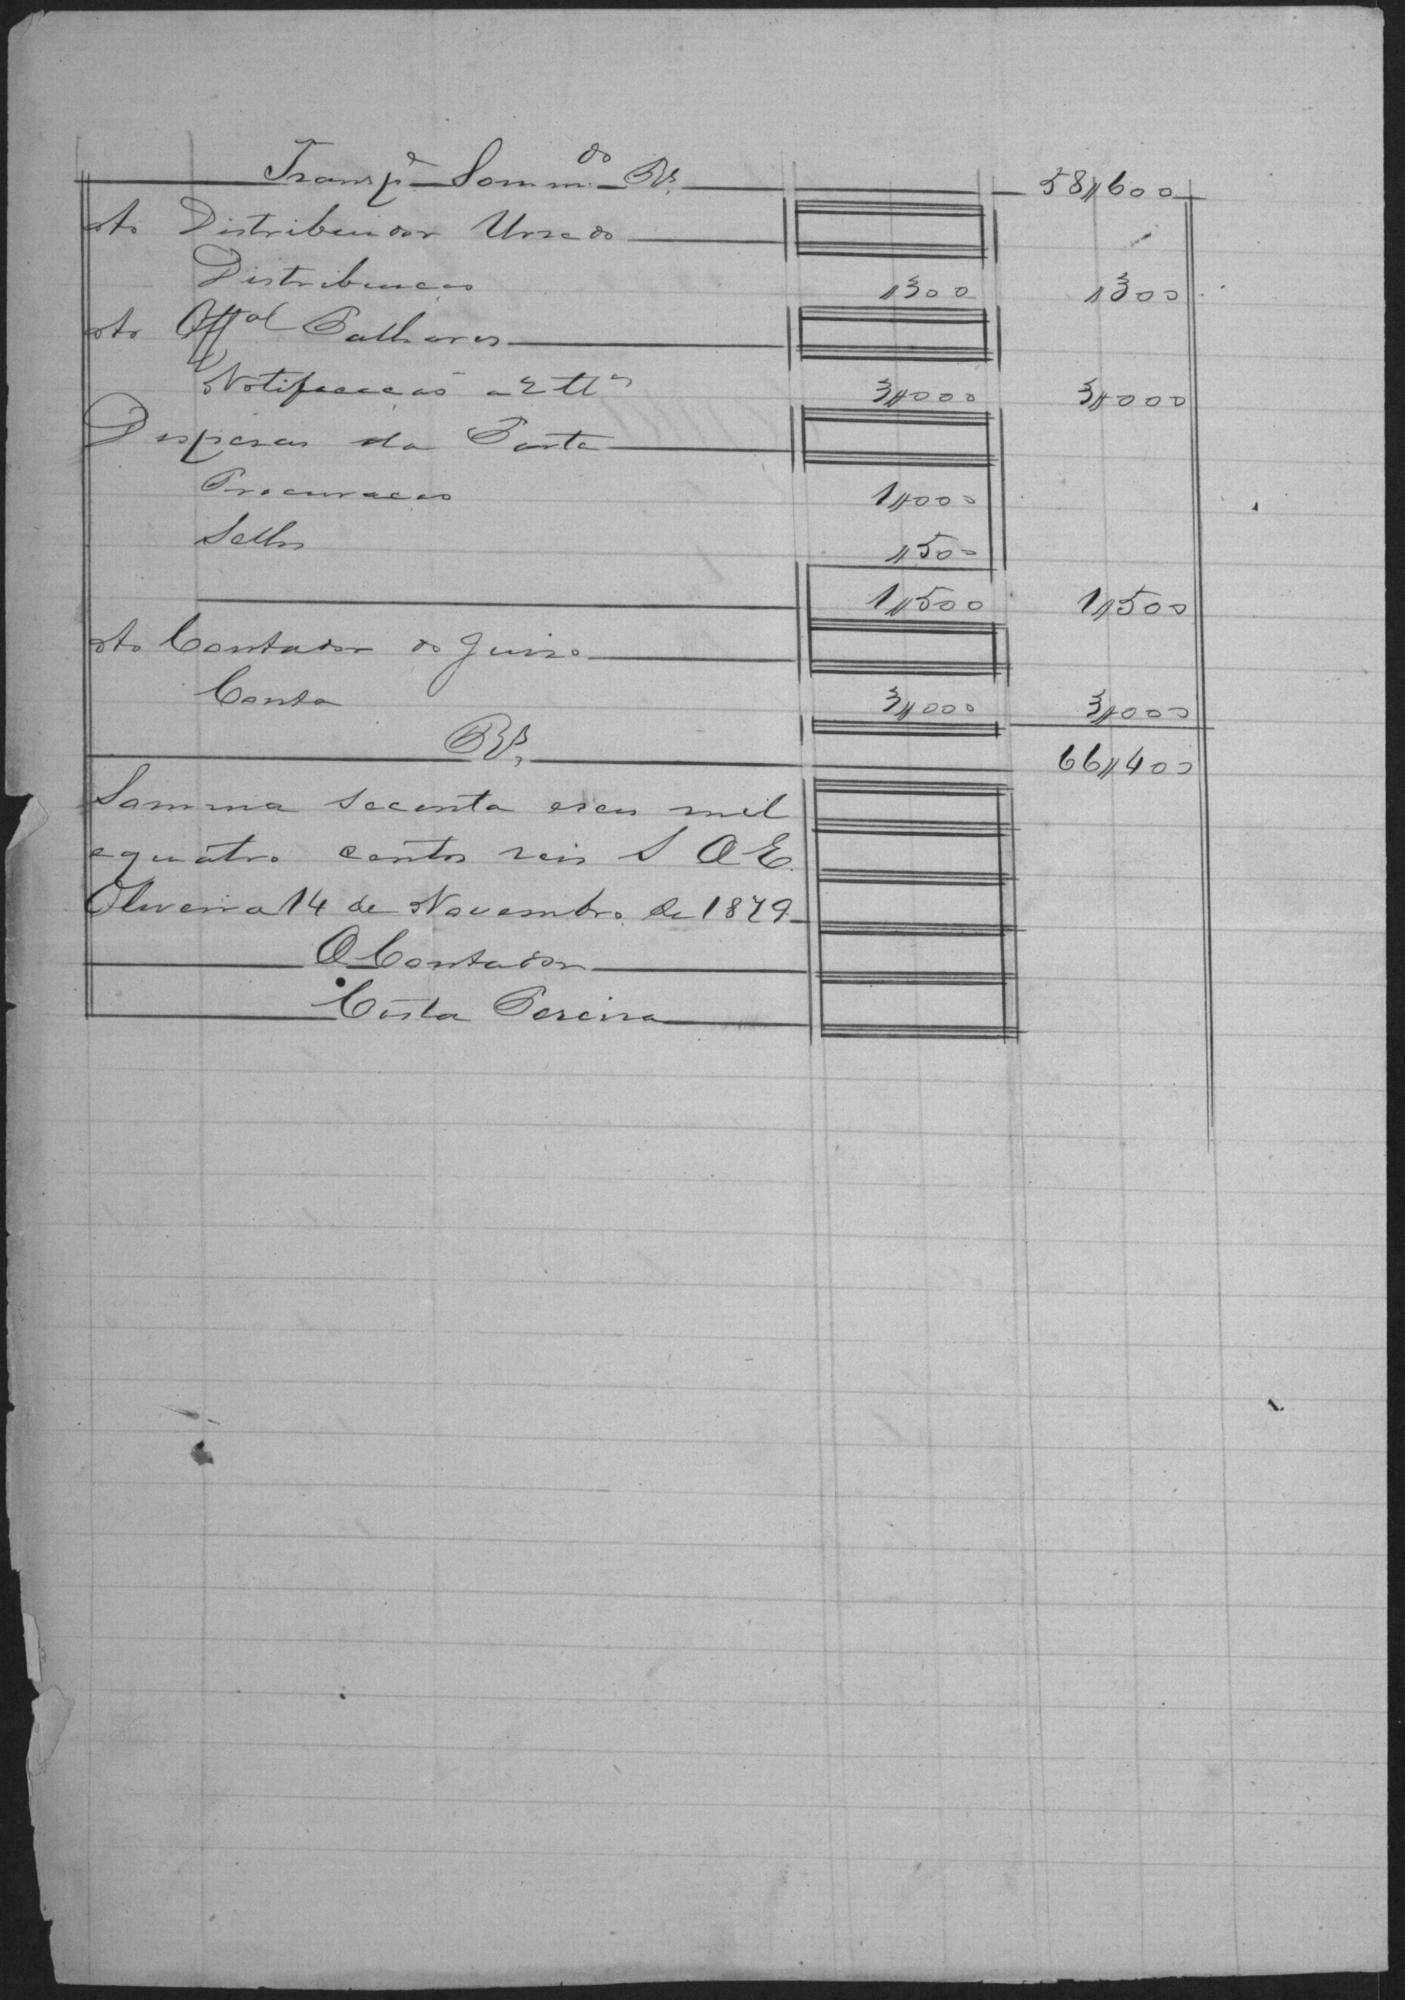 Transpe Sommdo Rs. 58,,600
Ao Distribuidor
Distribuiçao ,,300 ,,300
Ao Offal Palhares
Notificaçaõ a 2 3,,000 3,,000
Despesas da Parte
Procuraçao 1,,000
Sello ,,500
1,,500 1,,500
Ao Contador do Juizo
Conta 3,,000 3,,000
Rs. 66,,400
Somma secenta eseis mil
equatro centos reis S O E.
Oliveira 14 de Novembro de 1879
O Contador
Costa Pereira